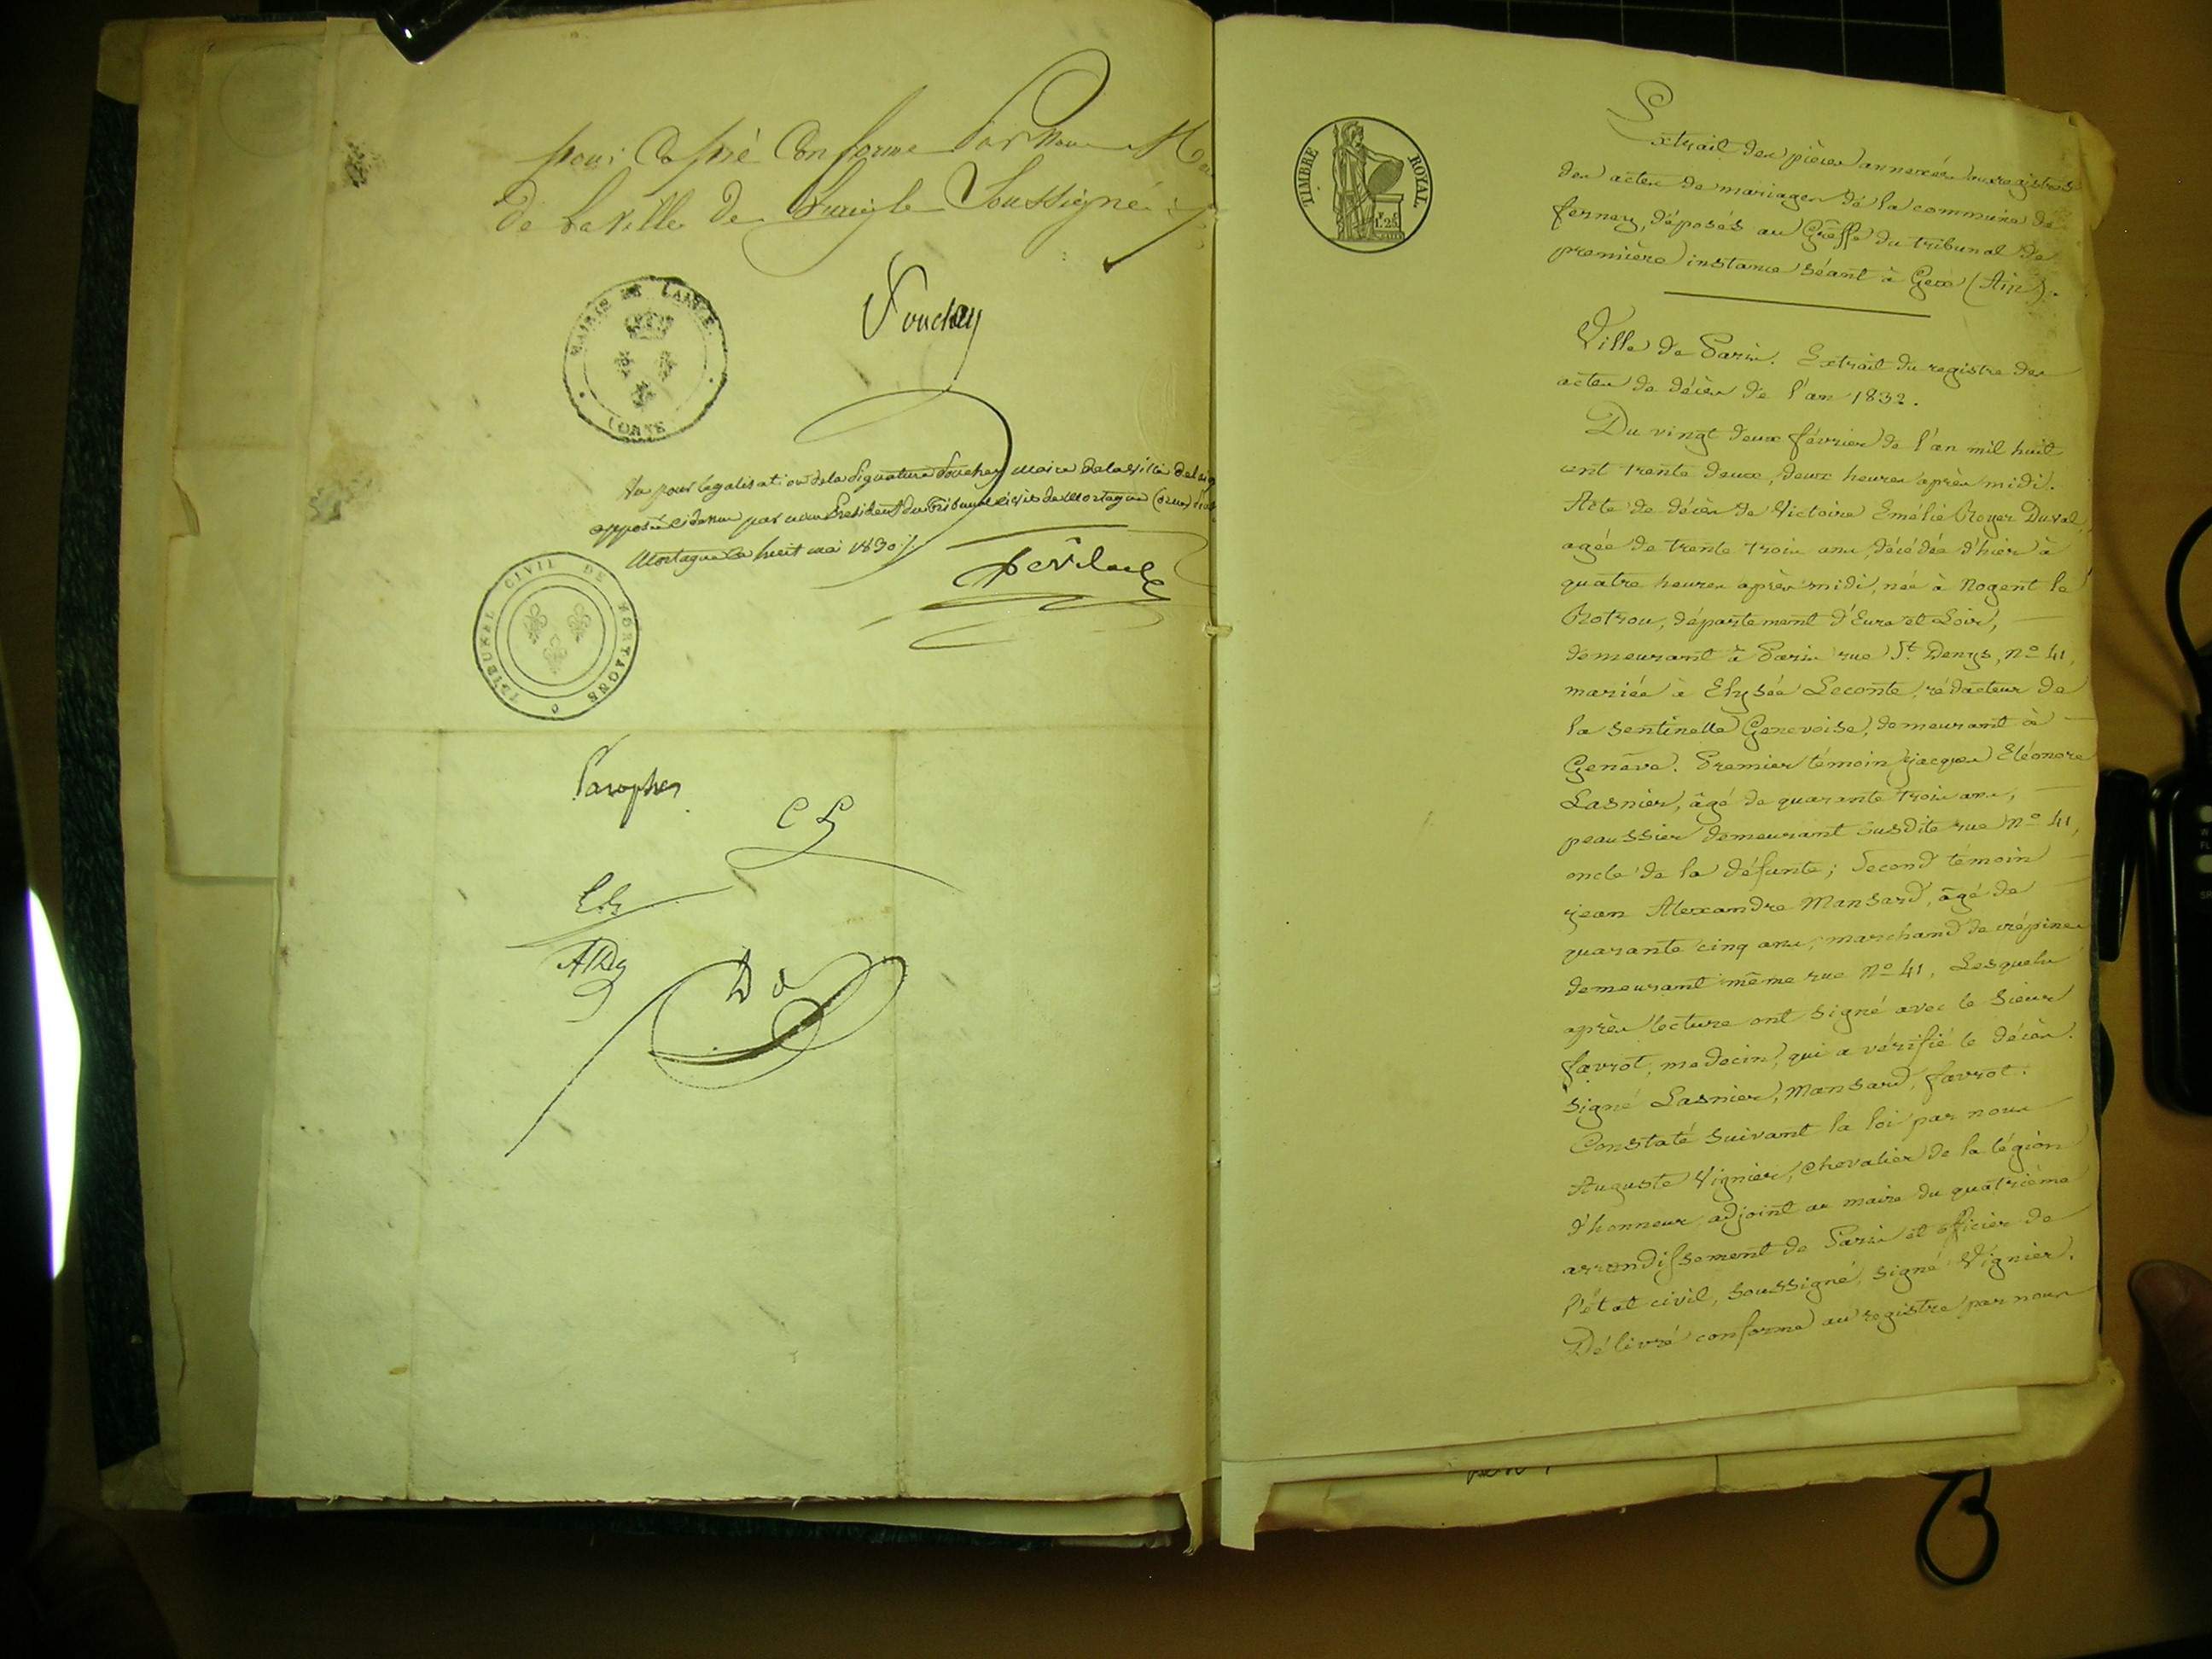 pour Copie Conforme Par Nous
de la Ville de Laigle Soussigné
MAIRIE DE LAIGLE
(ORNE)
Vu pour legalisation de la Signature Souchey maire de la Ville de
apposée ci dessus par nous President du Tribunal civil de Mortagne (orne)
Mortagne le huit mai 1830
TRIBUNAL CIVIL DE MORTAGNE
Paraphes
C L
A R D
D d
TIMBRE ROYAL
1.25
Extrait des pièces annexées aux registres
des actes de mariages de la commune de
ferney, déposés au Greffe du tribunal de
première instance séant à Gex (Ain).
Ville de Paris. Extrait du registre des
actes de décès de l'an 1832.
Du vingt deux février de l'an mil huit
cent trente deux, deux heures après midi.
Acte de décès de Victoire Emélie Royer Duval,
agée de trente trois ans décédée d'hier à
quatre heures après midi, née à Nogent le
Rotrou, département d'Eure et Loir,
demeurant à Paris rue St. Denys, no 41,
mariée à Elysée Leconte, rédacteur de
la sentinelle Genevoise, demeurant à
Genève. Premier témoin jacques Eléonore
Lasnier, âgé de quarante trois ans,
peaussier demeurant susdite rue no 41,
oncle de la défunte; Second témoin
jean Alexandre Mansard, âgé de
quarante cinq ans, marchand de crépines
demeurant même rue no 41, Lesquels
après lecture ont signé avec le sieur
favrot, medecin, qui a vérifié le décès.
signé Lasnier, Mansard, favrot.
Constaté suivant la loi par nous
Auguste Vignier, Chevalier de la légion
d'honneur adjoint au maire du quatrième
arrondissement de Paris et officier de
l'état civil, soussigné, signé Vignier.
Délivré conforme au registre par nous